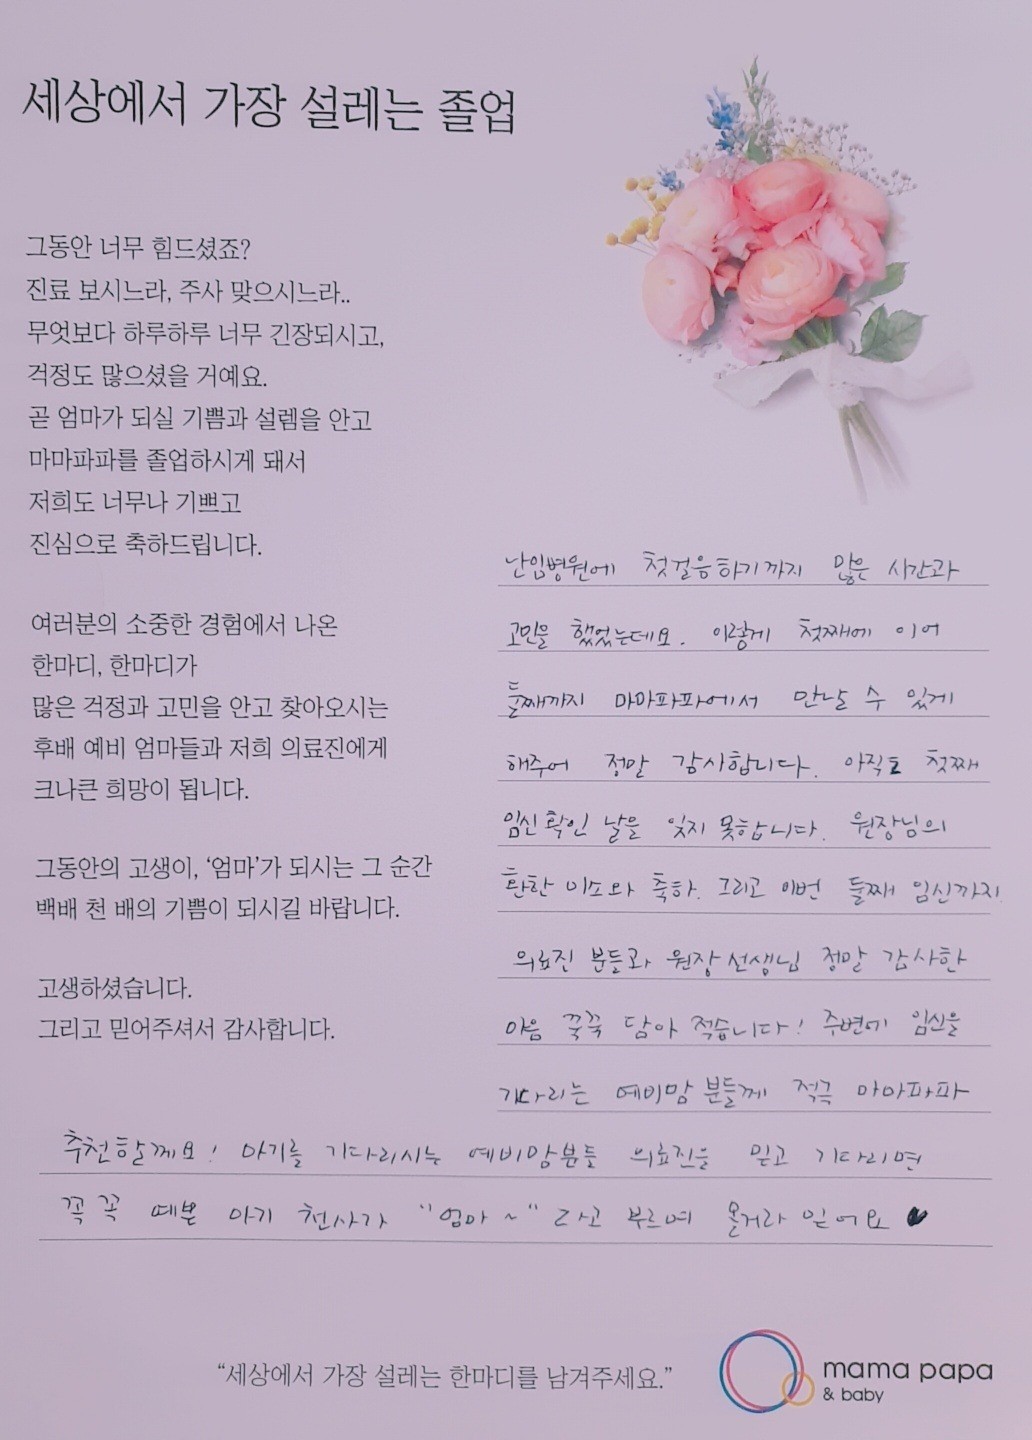 세상에서 가장 설레는 졸업
그동안 너무 힘드셨죠?
진료 보시느라, 주사 맞으시느라..
무엇보다 하루하루 너무 긴장되시고,
걱정도 많으셨을 거예요.
곧 엄마가 되실 기쁨과 설렘을 안고
마마파파를 졸업하시게 돼서
저희도 너무나 기쁘고
진심으로 축하드립니다.
여러분의 소중한 경험에서 나온
한마디, 한마디가
많은 걱정과 고민을 안고 찾아오시는
후배 예비 엄마들과 저희 의료진에게
크나큰 희망이 됩니다.
그동안의 고생이, ‘엄마’가 되시는 그 순간
백배 천 배의 기쁨이 되시길 바랍니다.
고생하셨습니다.
그리고 믿어주셔서 감사합니다.
난임병원에 첫걸음하기까지 많은 시간과
고민을 했었는데요. 이렇게 첫째에 이어
둘째까지 마마파파에서 만날 수 있게
해주어 정말 감사합니다. 아직도 첫째
임신 확인 날을 잊지 못합니다. 원장님의
환한 미소와 축하. 그리고 이번 둘째 임신까지.
의료진 분들과 원장선생님 정말 감사한
마음 꾹꾹 담아 적습니다! 주변에 임신을
기다리는 예비맘분들께 적극 마마파파
추천할께요! 아기를 기다리시는 예비맘분들 의료진을 믿고 기다리면
꼭 꼭 예쁜 아기 천사가 "엄마~" 라고 부르며 올거라 믿어요
“세상에서 가장 설레는 한마디를 남겨주세요.”
mama papa
& baby